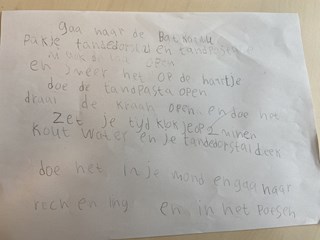 gaa naar de
pakje tandedorstel en tandpasta
open
en smeer het op de haartje
doe de tandpasta open
draai de kraan open en doe het
Zet je tijd klokje op 1 minen
kout water en je tandedorstal deek
doe het in je mond en ga naar
rech en ing en in het poesen